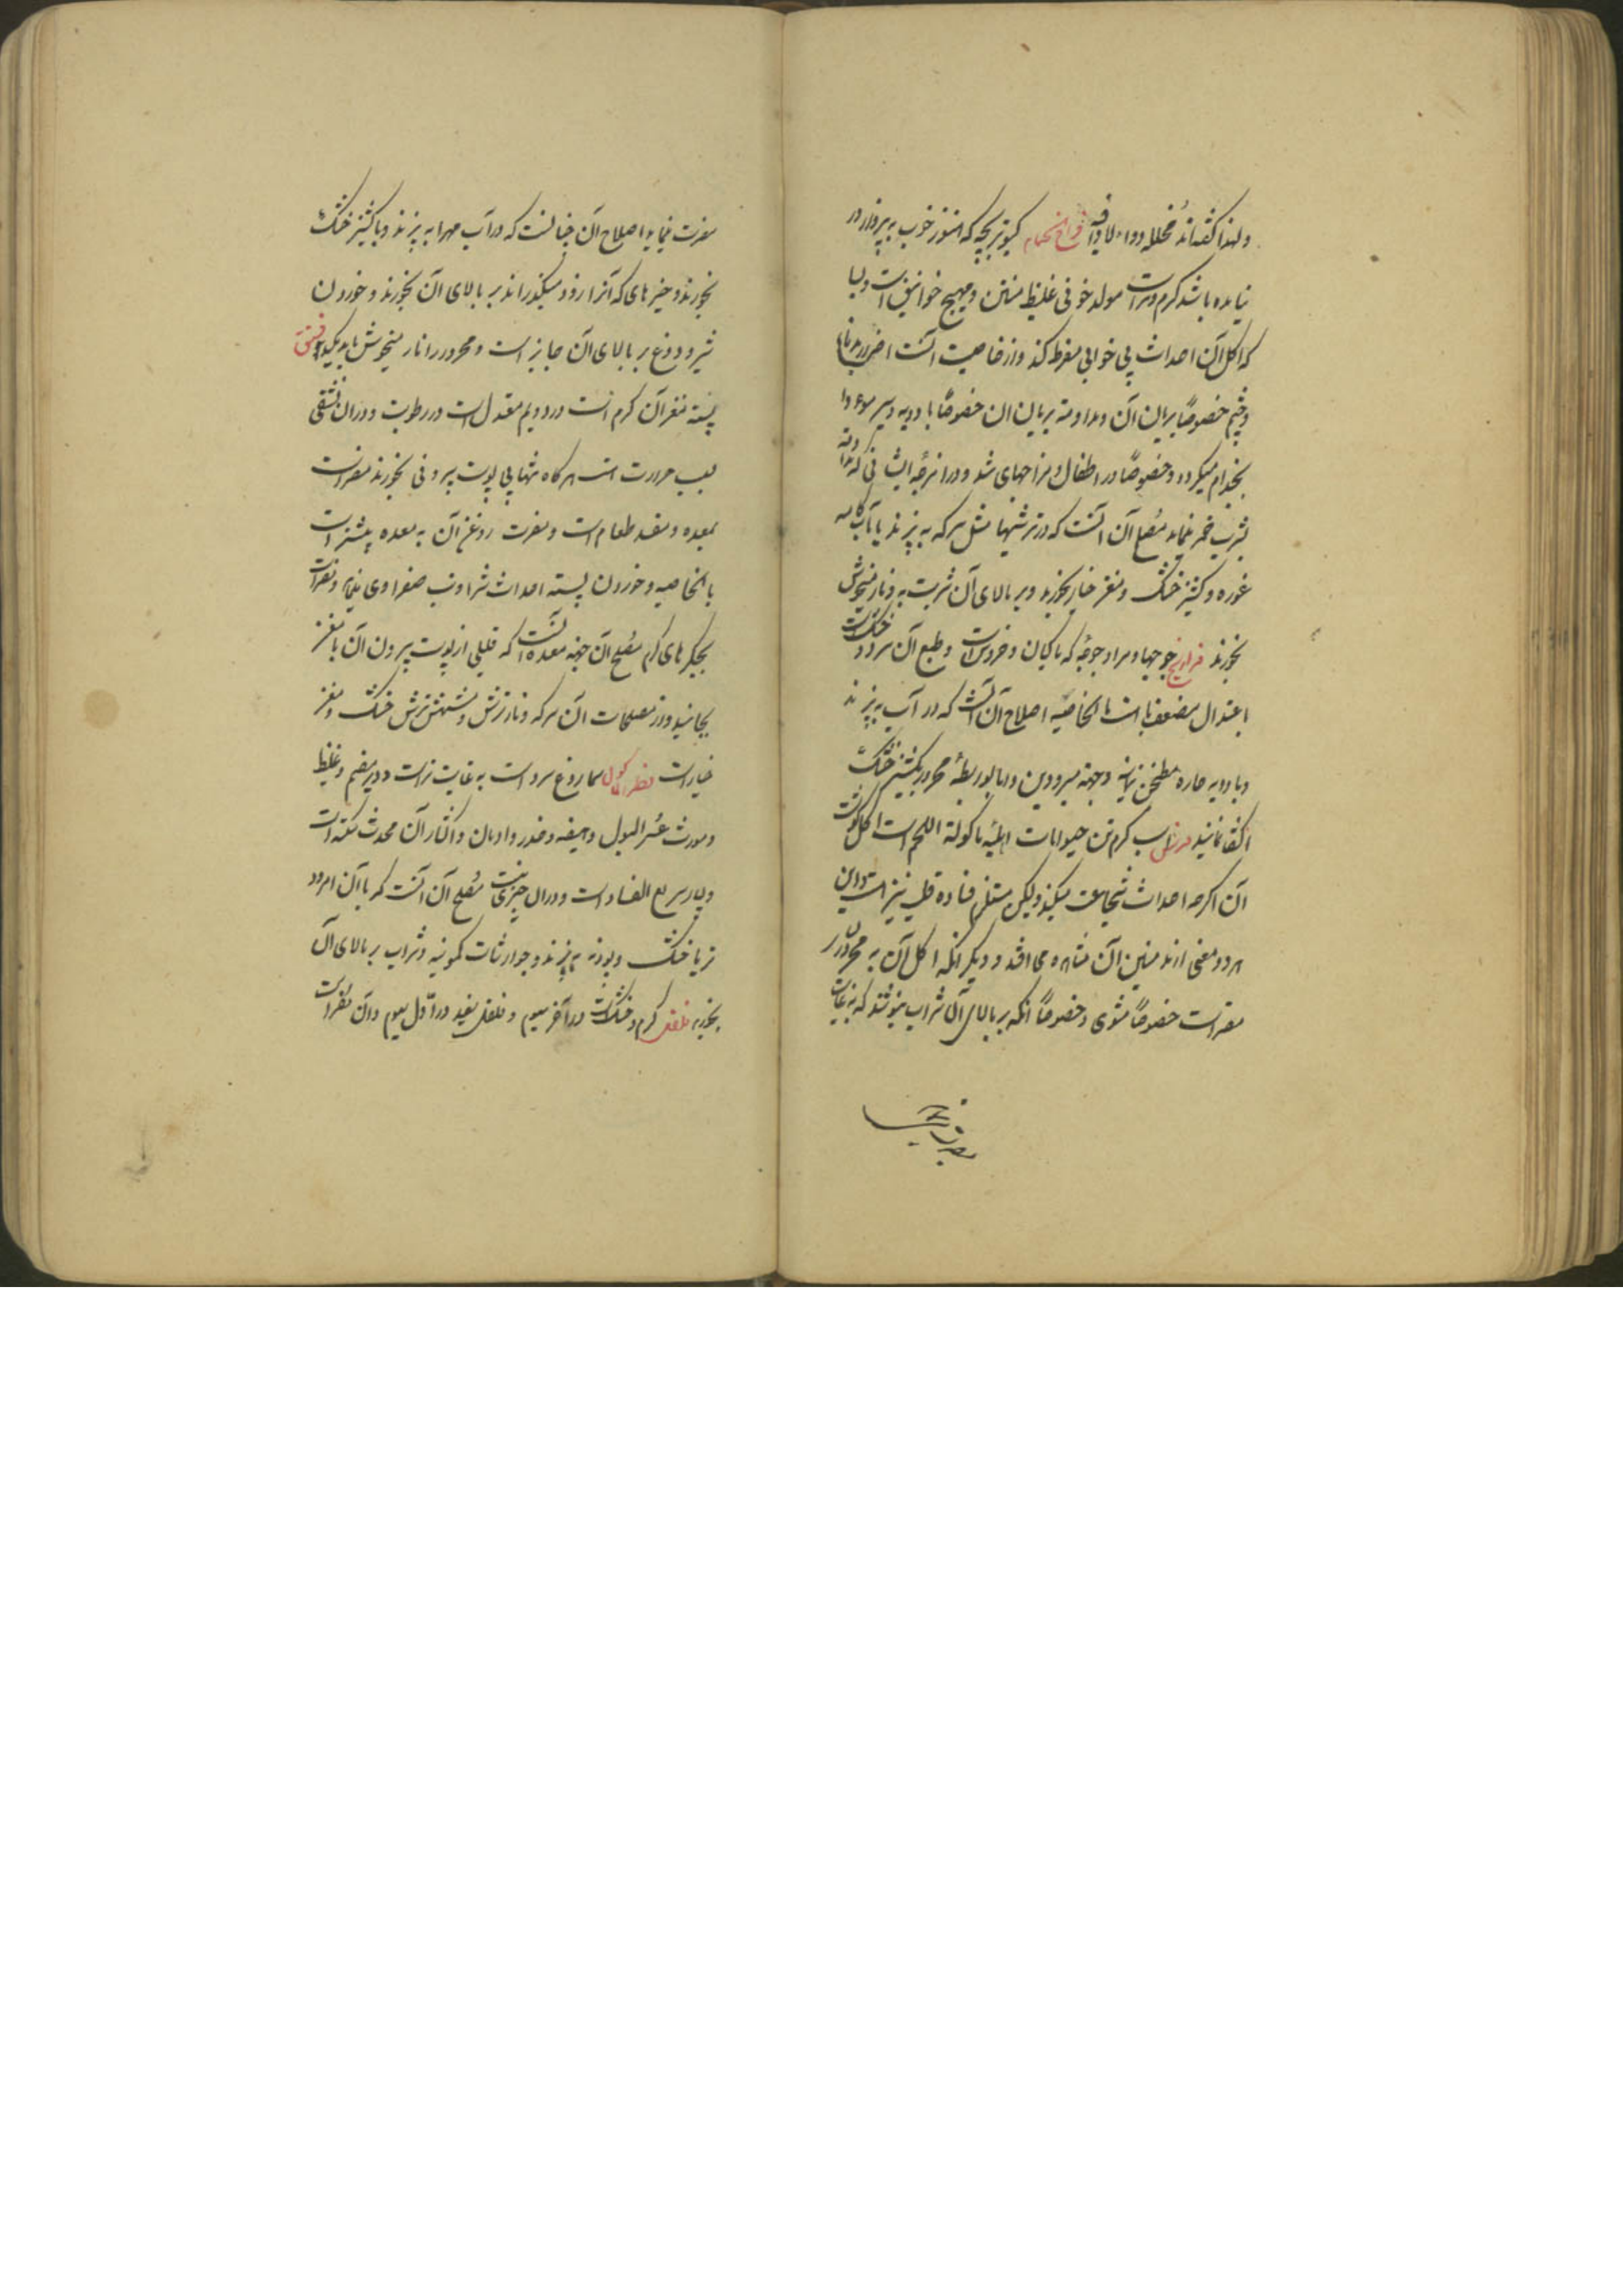 ولهذا گفته‌اند مُخلله دواء لا داء فیه فراخ الحمام کبوتربچه که هنوز خوب به پرواز در
نیامده باشد گرم و تر است مولد خونی غلیظ متین و مهیج خوانیق است و بسا
که اکل آن احداث بی خوابی مفرط کند و از خاصیت آنست اضرار بدماغ
و چشم خصوصاً بریان آن و مداومت بریان آن خصوصاً با ادویه و سیر مودا
بجذام میگردد و خصوصاً در اطفال و مزاجهای
بشرب خمر نماید مُصلح آن آنست که در ترشیها مثل سرکه به پزند یا آب کامه
غوره و کشنیز خشک و مغز خیار بخورند و بر بالای آن شربت به و نار میخوش
بخورند فراریج جوجها و مراد جوجهٔ که ماکیان و خروس است و طبع آن سرد و خشک است
باعتدال مضعف باه است بالخاصیه اصلاح آن آنست که در آب به پزند
و با ادویه حاره مطنجن نمایند و جهة مبرودین
اکتفا نمایند فرس اسب گرم‌ترین حیوانات اهلیّه ماکولة اللحم است اکل گوشت
آن اگرچه احداث شجاعت میکند ولیکن مستلزم قساوة قلب نیز است و این
هر دو معنی از مدمنین آن مشاهده می افتد و دیگر آنکه اکل آن به محرورین
مضر است خصوصاً مشوی و خصوصاً آنکه بر بالای آن شراب بنوشند که به غایت
مضرت نماید اصلاح آن چنانست که در آب مهرا به پزند و با کشنیز خشک
بخورند و چیزهای که آنرا زود میگذراند بر بالای آن بخورند و خوردن
شیر و دوغ بر بالای آن جایز است و محرور را نار میخوش باید مکید فستق
پسته مغز آن گرم است در دویم معتدل است در رطوبت و در آن نشفی
بسبب حرارت است هرگاه تنها بی پوست بیرونی بخورند مضر است
بمعده و مفسد طعام است و مضرت روغن آن به معده بیشتر است
بالخاصیه و خوردن پسته احداث شرا و تب صفراوی نماید و مضر است
بجگرهای گرم مصلح آن جهة معده آنست که قلیلی از پوست بیرون آن با مغز
بخایند و از مصلحات آن سرکه و نار ترش و مشمش ترش خشک و مغز
خیار است فطر کول سماروغ سرد است به غایت تر است و دیر هضم و غلیظ
و مورث عُسر البول و هیضه و خدر و ادمان و اکثار آن محدث سکته است
و بسیار سریع الفساد است و در آن چیزی نیست مُصلح آن آنست که با آن امرود
تر یا خشک و پودنه به پزند و جوارشات کمونیه و شراب بر بالای آن
بخورند فلفل گرم و خشک است در آخر سیوم و فلفل سفید در اوّل سیوم و آن مضر است